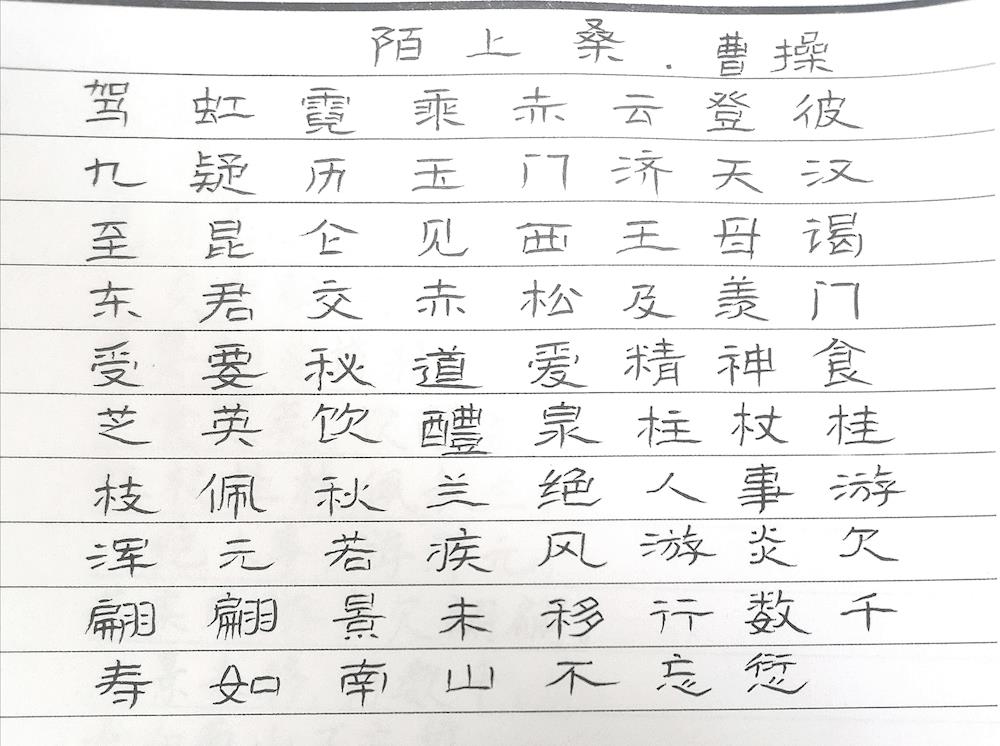 陌上桑.曹操
驾虹霓乘赤云登彼
九疑历玉门济天汉
至昆仑见西王母谒
东君交赤松及羡门
受要秘道爱精神食
芝英饮醴泉柱杖桂
枝佩秋兰绝人事游
浑元若疾风游炎欠
翩翩景未移行数千
寿如南山不忘愆